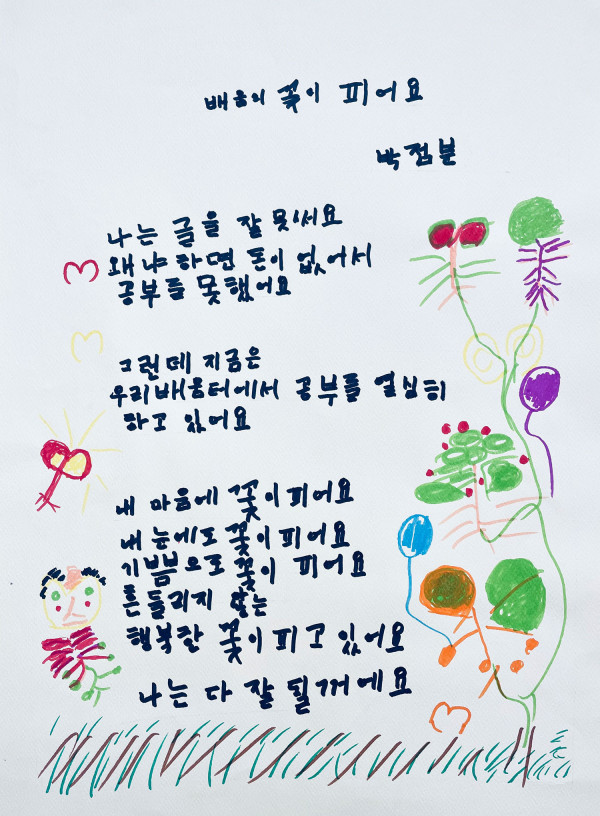 배움의 꽃이 피어요
박점분
나는 글을 잘 못써요
왜냐하면 돈이 없어서
공부를 못했어요
그런데 지금은
우리배움터에서 공부를 열심히
하고 있어요
내 마음에 꽃이피어요
내 눈에도 꽃이피어요
기쁨으로 꽃이 피어요
흔들리지 않는
행복한 꽃이피고 있어요
나는 다 잘 될꺼에요